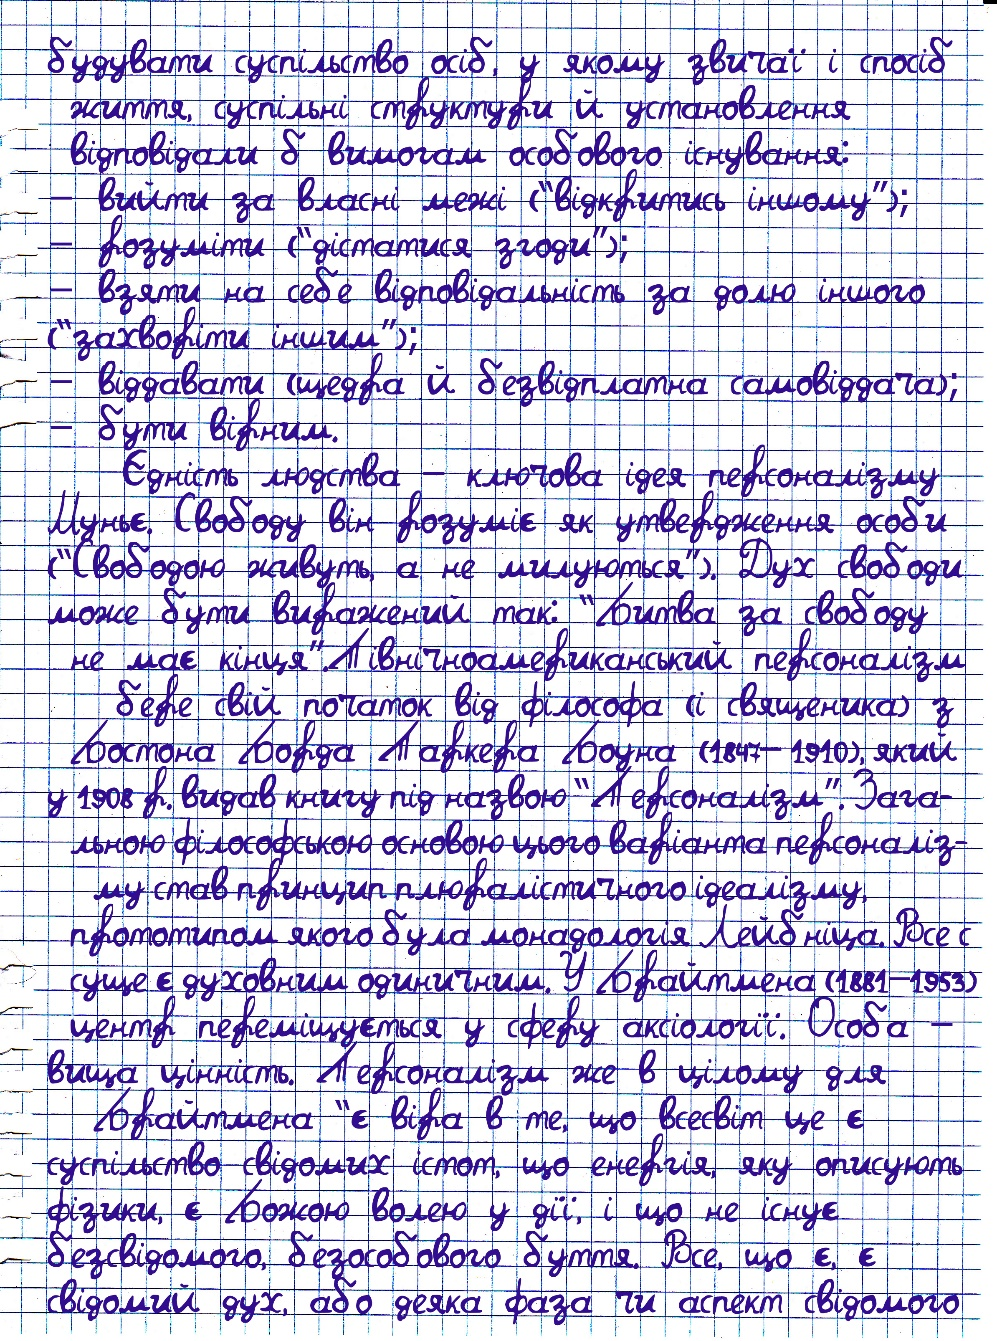 будувати суспільство осіб, у якому звичаї і спосіб
життя, суспільні структури й установлення
відповідали б вимогам особового існування:
— вийти за власні межі ("відкритись іншому");
— розуміти ("дістатися згоди");
— взяти на себе відповідальність за долю іншого
("захворіти іншим");
— віддавати (щедра й безвідплатна самовіддача);
— бути вірним.
Єдність людства — ключова ідея персоналізму
Муньє. Свободу він розуміє як утвердження особи
("Свободою живуть, а не милуються"). Дух свободи
може бути виражений так: "Битва за свободу
не має кінця". Північноамериканський персоналізм
бере свій початок від філософа (і священика) з
Бостона Борда Паркера Боуна (1847— 1910), який
у 1908 р. видав книгу під назвою "Персоналізм". Зага-
льною філософською основою цього варіанта персоналіз-
му став принцип плюралістичного ідеалізму,
прототипом якого була монадологія Лейбніца. Все с
суще є духовним одиничним. У Брайтмена (1881—1953)
центр переміщується у сферу аксіології. Особа —
вища цінність. Персоналізм же в цілому для
Брайтмена "є віра в те, що всесвіт це є
суспільство свідомих істот, що енергія, яку описують
фізики, є Божою волею у дії, і що не існує
безсвідомого, безособового буття. Все, що є, є
свідомий дух, або деяка фаза чи аспект свідомого